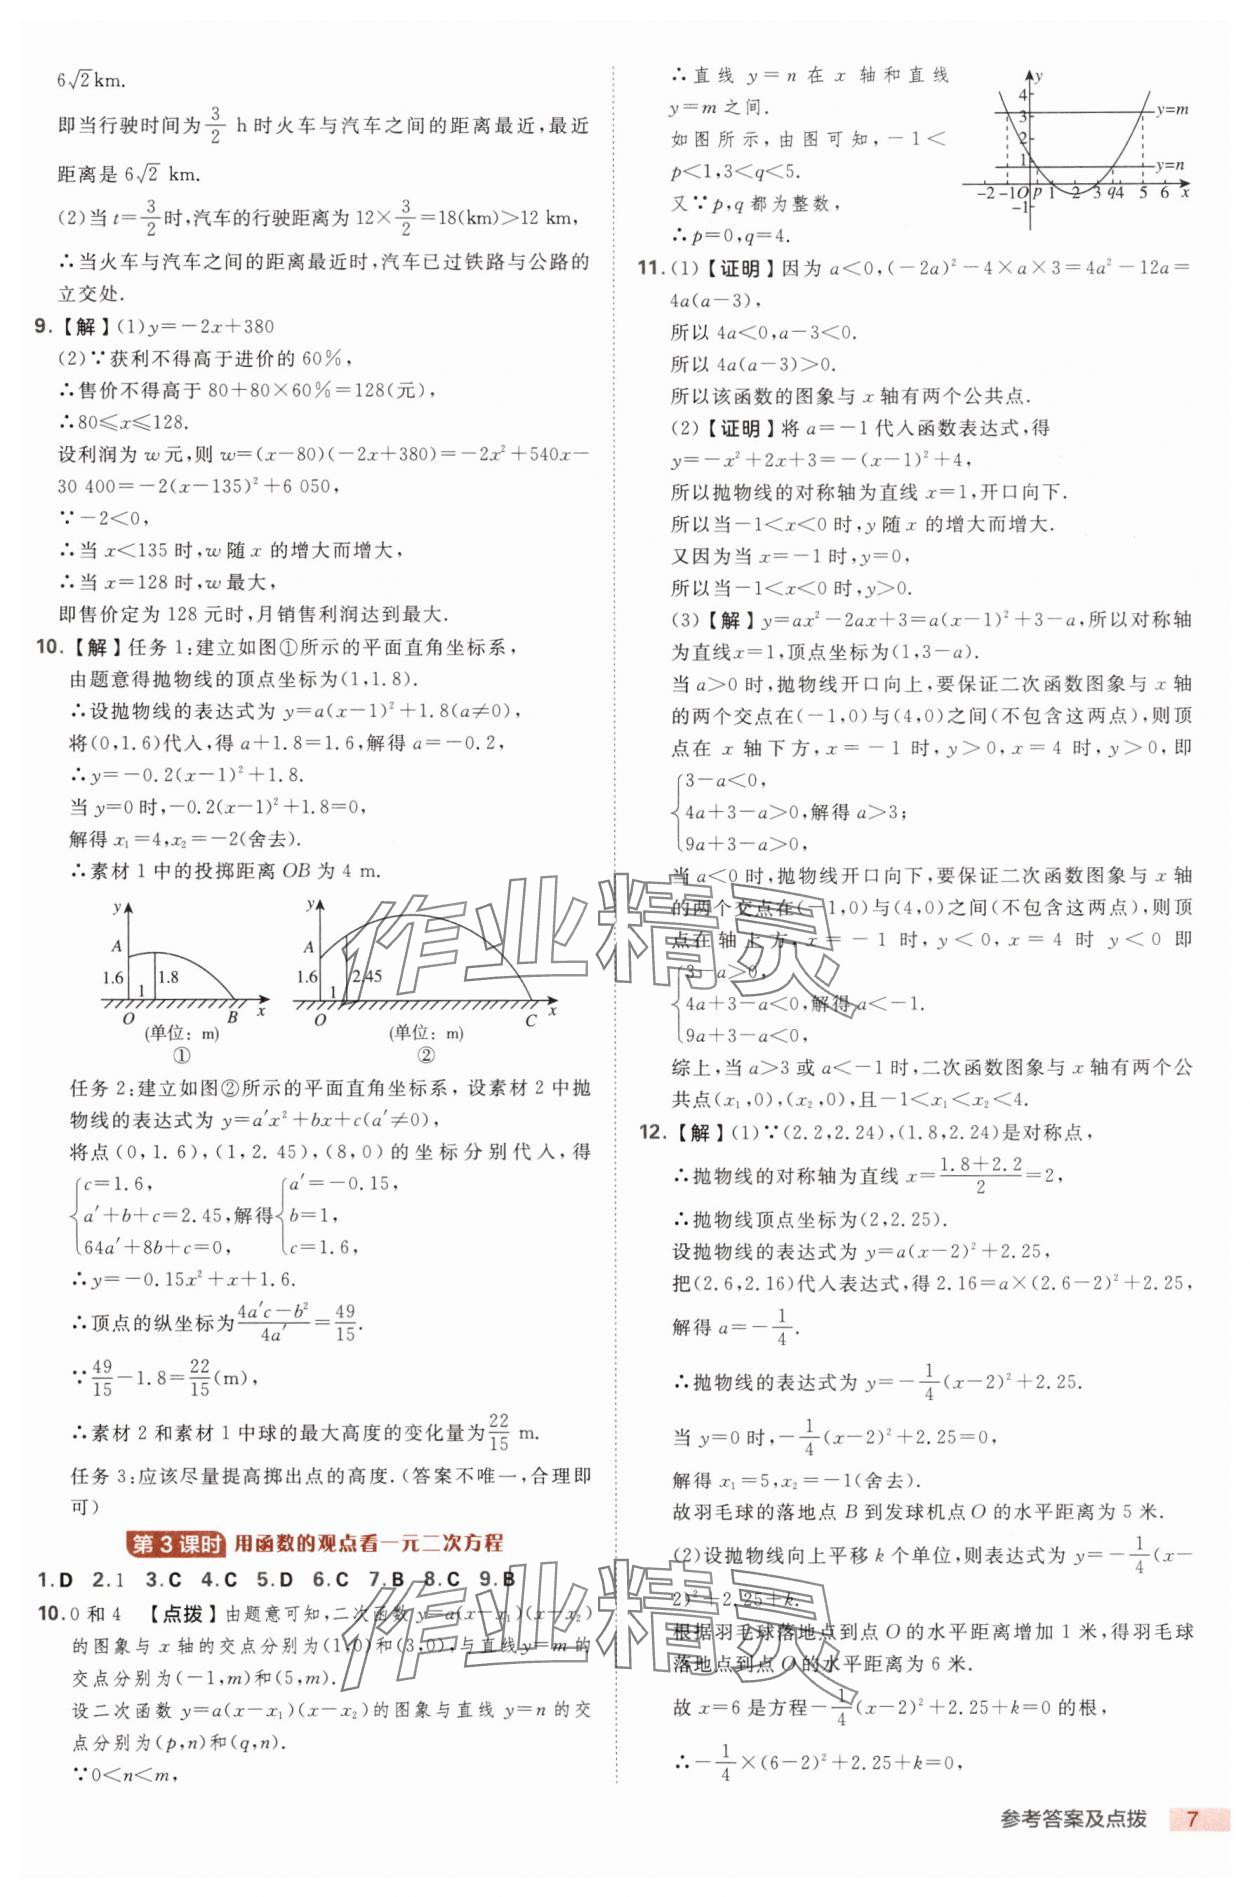 6√2km.
即当行驶时间为3/2 h时火车与汽车之间的距离最近,最近
距离是6√2 km.
(2)当t=3/2时,汽车的行驶距离为12×3/2=18(km)>12 km,
∴当火车与汽车之间的距离最近时,汽车已过铁路与公路的
立交处.
9.【解】(1)y=-2x+380
(2)∵获利不得高于进价的60%,
∴售价不得高于80+80×60%=128(元),
∴80≤x≤128.
设利润为w元,则w=(x-80)(-2x+380)=-2x²+540x-
30 400=-2(x-135)²+6 050,
∵-2<0,
∴当x<135时,w随x的增大而增大,
∴当x=128时,w最大,
即售价定为128元时,月销售利润达到最大.
10.【解】任务1:建立如图①所示的平面直角坐标系,
由题意得抛物线的顶点坐标为(1,1.8).
∴设抛物线的表达式为y=a(x-1)²+1.8(a≠0),
将(0,1.6)代入,得a+1.8=1.6,解得a=-0.2,
∴y=-0.2(x-1)²+1.8.
当y=0时,-0.2(x-1)²+1.8=0,
解得x₁=4,x₂=-2(舍去).
∴素材1中的投掷距离OB为4 m.
y
A
1.6
1.8
1
O
B
x
(单位:m)
①
y
A
1.6
2.45
1
O
C
x
(单位:m)
②
任务2:建立如图②所示的平面直角坐标系,设素材2中抛
物线的表达式为y=a′x²+bx+c(a′≠0),
将点(0,1.6),(1,2.45),(8,0)的坐标分别代入,得
{c=1.6, a′+b+c=2.45, 64a′+8b+c=0,解得{a′=-0.15, b=1, c=1.6,
∴y=-0.15x²+x+1.6.
∴顶点的纵坐标为(4a′c-b²)/4a′=49/15.
∵49/15-1.8=22/15(m),
∴素材2和素材1中球的最大高度的变化量为22/15 m.
任务3:应该尽量提高掷出点的高度.(答案不唯一,合理即
可)
第3课时 用函数的观点看一元二次方程
1.D 2.1 3.C 4.C 5.D 6.C 7.B 8.C 9.B
10.0和4 【点拨】由题意可知,二次函数y=a(x-x₁)(x-x₂)
的图象与x轴的交点分别为(1,0)和(3,0),与直线y=m的
交点分别为(-1,m)和(5,m).
设二次函数y=a(x-x₁)(x-x₂)的图象与直线y=n的交
点分别为(p,n)和(q,n).
∵0<n<m,
∴直线y=n在x轴和直线
y=m之间.
如图所示,由图可知,-1<
p<1,3<q<5.
又∵p,q都为整数,
∴p=0,q=4.
y
4
3
2
1
y=m
y=n
-2 -1O p 1 2 3 q4 5 6 x
-1
11.(1)【证明】因为a<0,(-2a)²-4×a×3=4a²-12a=
4a(a-3),
所以4a<0,a-3<0.
所以4a(a-3)>0.
所以该函数的图象与x轴有两个公共点.
(2)【证明】将a=-1代入函数表达式,得
y=-x²+2x+3=-(x-1)²+4,
所以抛物线的对称轴为直线x=1,开口向下.
所以当-1<x<0时,y随x的增大而增大.
又因为当x=-1时,y=0,
所以当-1<x<0时,y>0.
(3)【解】y=ax²-2ax+3=a(x-1)²+3-a,所以对称轴
为直线x=1,顶点坐标为(1,3-a).
当a>0时,抛物线开口向上,要保证二次函数图象与x轴
的两个交点在(-1,0)与(4,0)之间(不包含这两点),则顶
点在x轴下方,x=-1时,y>0,x=4时,y>0,即
{3-a<0,
4a+3-a>0,解得a>3;
9a+3-a>0,
当a<0时,抛物线开口向下,要保证二次函数图象与x轴
的两个交点在(-1,0)与(4,0)之间(不包含这两点),则顶
点在轴上方,x=-1时,y<0,x=4时y<0即
{3-a>0,
4a+3-a<0,解得a<-1.
9a+3-a<0,
综上,当a>3或a<-1时,二次函数图象与x轴有两个公
共点(x₁,0),(x₂,0),且-1<x₁<x₂<4.
12.【解】(1)∵(2.2,2.24),(1.8,2.24)是对称点,
∴抛物线的对称轴为直线x=(1.8+2.2)/2=2,
∴抛物线顶点坐标为(2,2.25).
设抛物线的表达式为y=a(x-2)²+2.25,
把(2.6,2.16)代入表达式,得2.16=a×(2.6-2)²+2.25,
解得a=-1/4.
∴抛物线的表达式为y=-1/4(x-2)²+2.25.
当y=0时,-1/4(x-2)²+2.25=0,
解得x₁=5,x₂=-1(舍去).
故羽毛球的落地点B到发球机点O的水平距离为5米.
(2)设抛物线向上平移k个单位,则新抛物线为y=-1/4(x-
2)²+2.25+k.
根据羽毛球落地点到点O的水平距离增加1米,得羽毛球
落地点到点O的水平距离为6米.
故x=6是方程-1/4(x-2)²+2.25+k=0的根,
∴-1/4×(6-2)²+2.25+k=0,
参考答案及点拨 7
作业精灵
作业精灵